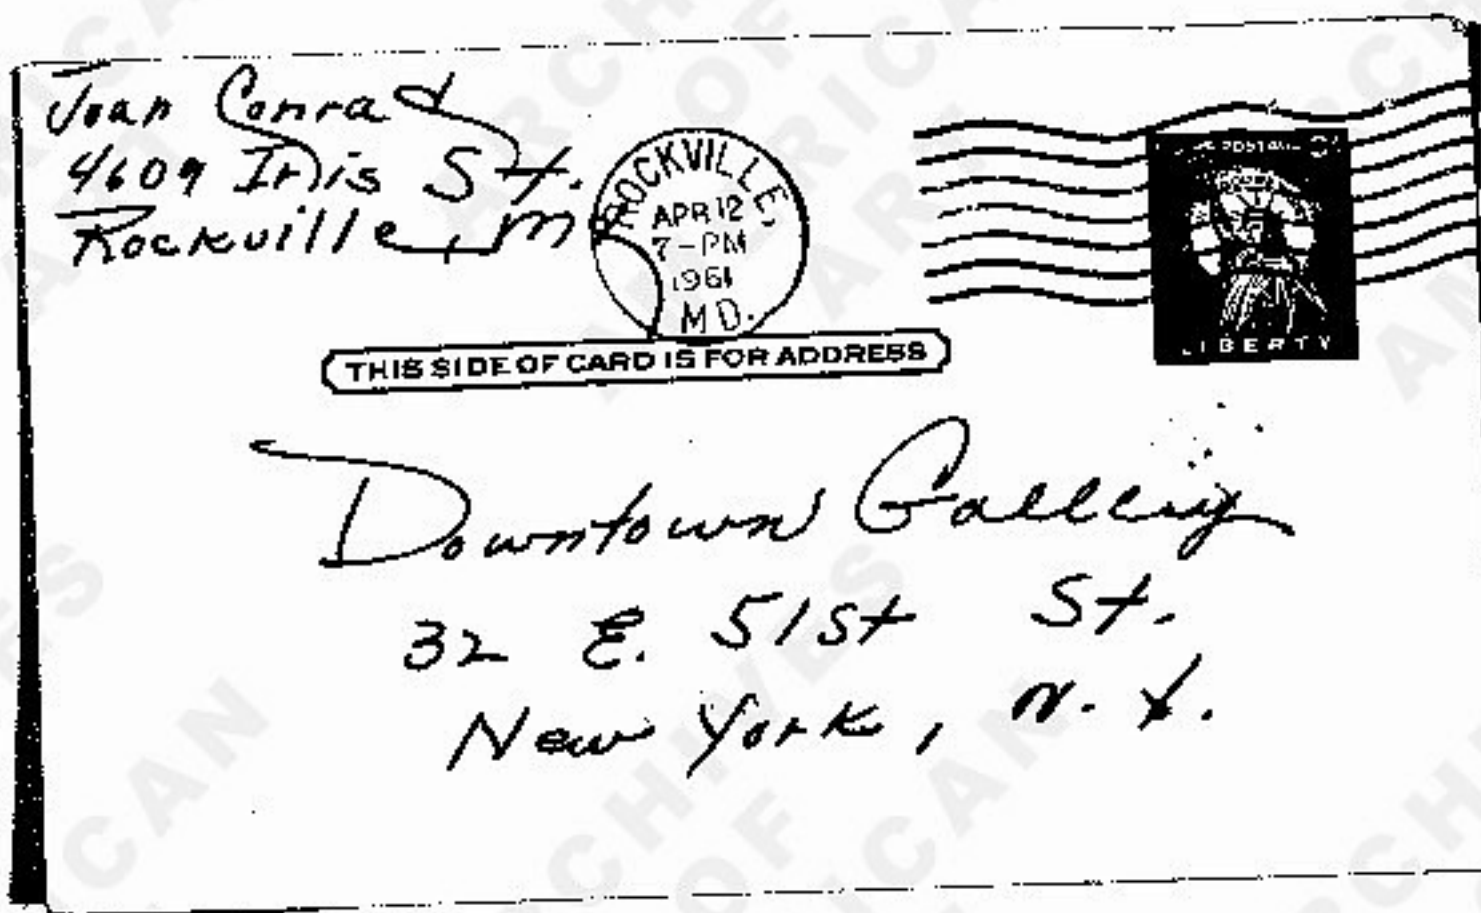 Joan Conrad
4609 Iris St.
Rockville, Md
ROCKVILLE,
APR 12
7-PM
1961
MD.
POSTAGE
LIBERTY
THIS SIDE OF CARD IS FOR ADDRESS
Downtown Gallery
32 E. 51st St.
New York, N.Y.
ARCHIVES
OF
AMERICAN